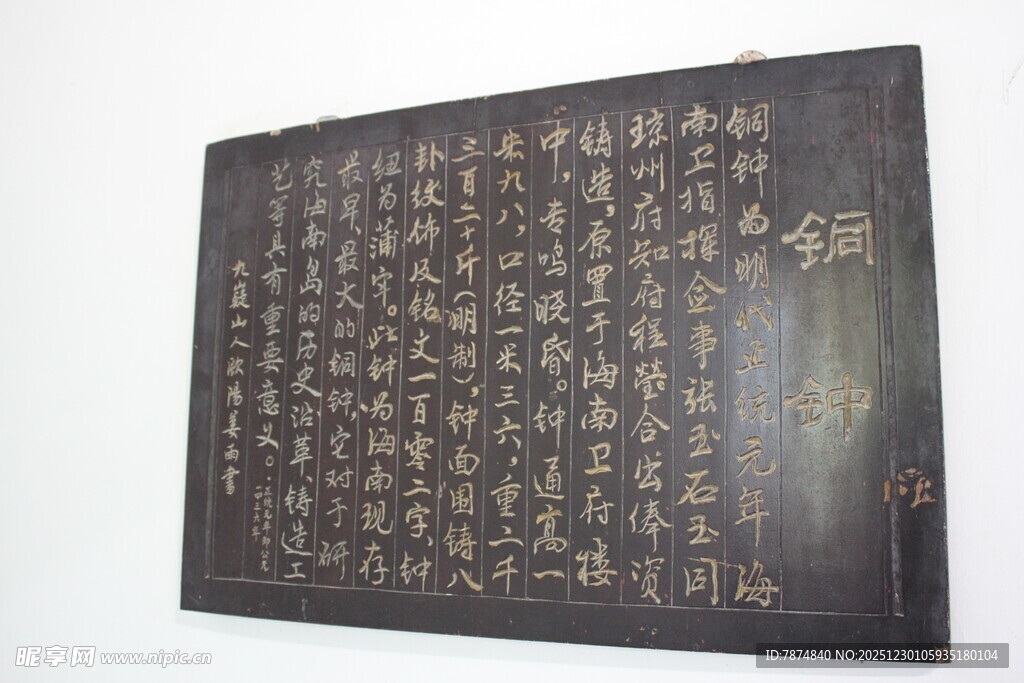 铜钟
铜钟为明代正统元年海
南卫指挥佥事张玉石玉同
琼州府知府程莹合出俸资
铸造,原置于海南卫府楼
中,专鸣晓昏。钟通高一
米九八,口径一米三六,重二千
三百二十斤(明制),钟面围铸八
卦纹饰及铭文一百零二字、钟
纽为蒲牢。此钟为海南现存
最早、最大的铜钟,它对于研
究海南岛的历史沿革、铸造工
艺等具有重要意义。
·正统元年即公元
一四三六年
九嶷山人欧阳姜雨书
昵享网 www.nipic.cn
ID:7874840 NO:20251230105935180104